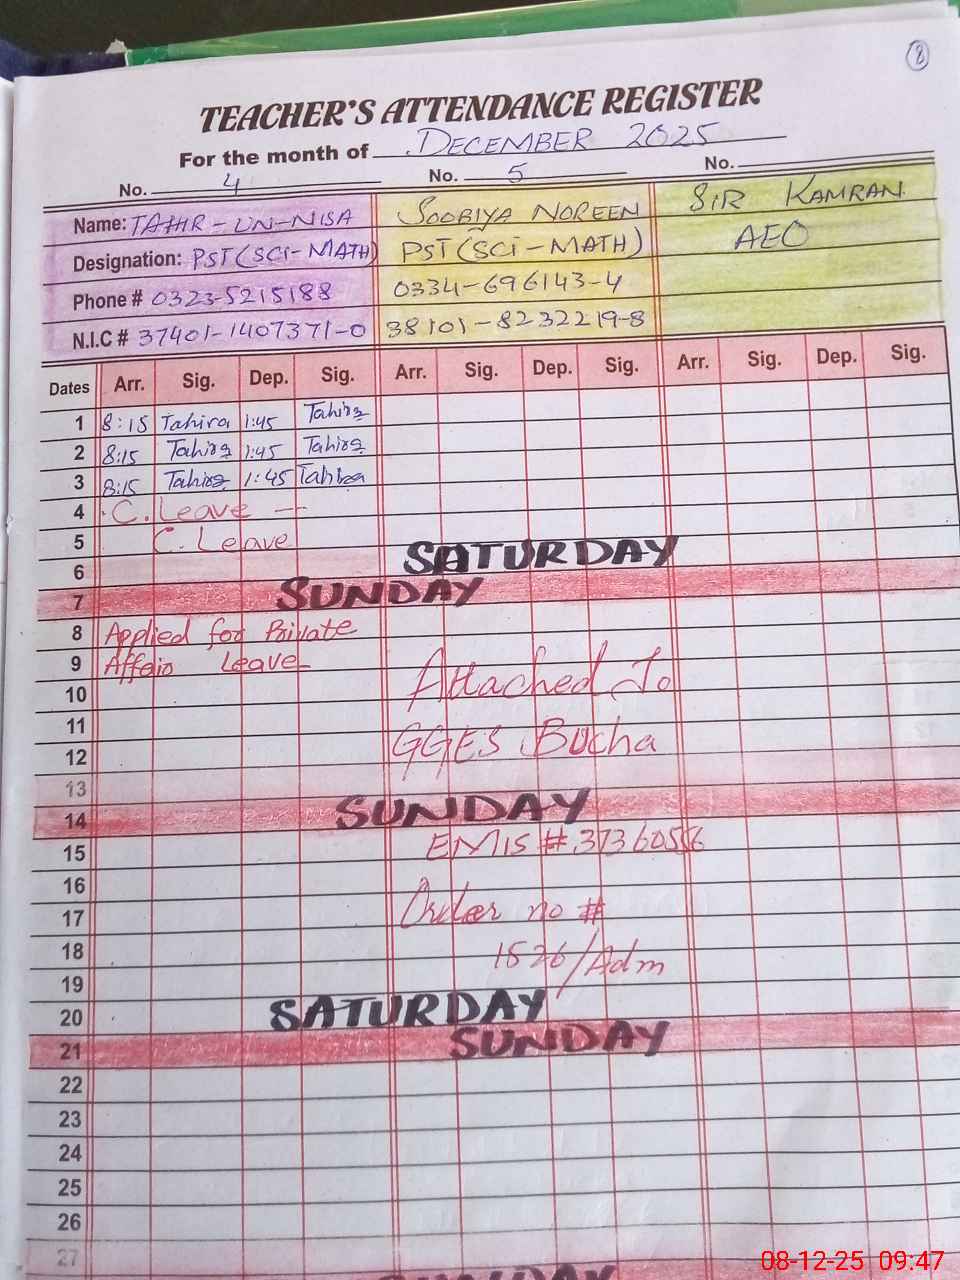 8
TEACHER'S ATTENDANCE REGISTER
For the month of DECEMBER 2025
No. 4 No. 5 No.
Name: TAHIR-UN-NISA SOOBIYA NOREEN SIR KAMRAN
Designation: PST (SCI-MATH) PST (SCI-MATH) AEO
Phone # 0323-5215188 0334-696143-4
N.I.C # 37401-1407371-0 38101-8232219-8
Dates Arr. Sig. Dep. Sig. Arr. Sig. Dep. Sig. Arr. Sig. Dep. Sig.
1 8:15 Tahira 1:45 Tahira
2 8:15 Tahira 1:45 Tahira
3 8:15 Tahira 1:45 Tahira
4 C. Leave —
5 C. Leave
6 SATURDAY
7 SUNDAY
8 Applied for Private
9 Affair Leave
10 Attached To
11
12 GGES Bucha
13
14 SUNDAY
15 EMIS # 37360556
16
17 Order no #
18 1526/Adm
19
20 SATURDAY
21 SUNDAY
22
23
24
25
26
27
SUNDAY
08-12-25 09:47